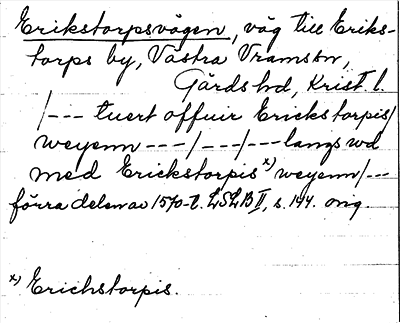 Erikstorpsvägen, väg till Eriks-
torps by, Västra Vramssn,
Gärds hd, Krist. l.
/--- tuert offuir Erickstorpis/
weyenn ---/---/--- langs wd
med Erickstorpis x) weyenn/---
förra delen av 1570-t. LSLB II, s. 144. orig.
x) Erichstorpis.